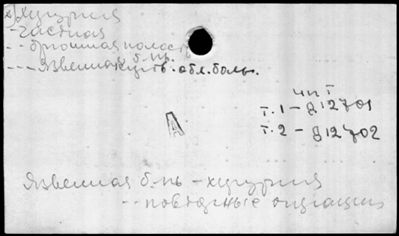 хирургия
частная
-- брюшная полость
--- язвенная б-нь.
чит
т.1 - g 12701
т.2 - g 12702
Язвенная б-нь - хирургия
-- повторные операции